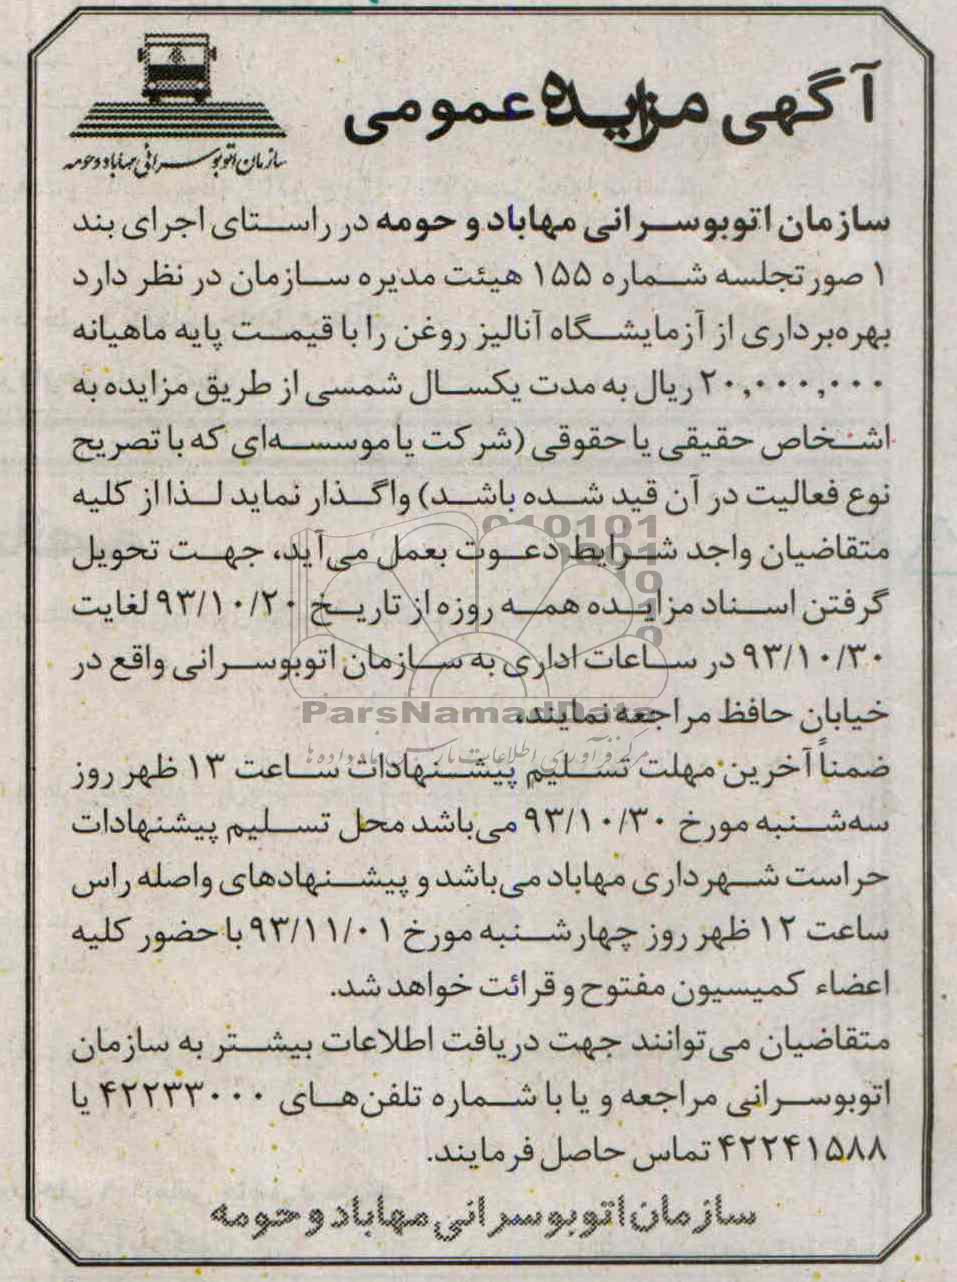 آگهی مزایده عمومی
سازمان اتوبوسرانی مهاباد و حومه
سازمان اتوبوسرانی مهاباد و حومه در راستای اجرای بند
۱ صورتجلسه شماره ۱۵۵ هیئت مدیره سازمان در نظر دارد
بهره‌برداری از آزمایشگاه آنالیز روغن را با قیمت پایه ماهیانه
۲۰,۰۰۰,۰۰۰ ریال به مدت یکسال شمسی از طریق مزایده به
اشخاص حقیقی یا حقوقی (شرکت یا موسسه‌ای که با تصریح
نوع فعالیت در آن قید شده باشد) واگذار نماید لذا از کلیه
متقاضیان واجد شرایط دعوت بعمل می‌آید، جهت تحویل
گرفتن اسناد مزایده همه روزه از تاریخ ۹۳/۱۰/۲۰ لغایت
۹۳/۱۰/۳۰ در ساعات اداری به سازمان اتوبوسرانی واقع در
خیابان حافظ مراجعه نمایند.
ParsNamadData
مرکز فرآوری اطلاعات پارس نماد داده ها
ضمناً آخرین مهلت تسلیم پیشنهادات ساعت ۱۳ ظهر روز
سه‌شنبه مورخ ۹۳/۱۰/۳۰ می‌باشد محل تسلیم پیشنهادات
حراست شهرداری مهاباد می‌باشد و پیشنهادهای واصله راس
ساعت ۱۲ ظهر روز چهارشنبه مورخ ۹۳/۱۱/۰۱ با حضور کلیه
اعضاء کمیسیون مفتوح و قرائت خواهد شد.
متقاضیان می‌توانند جهت دریافت اطلاعات بیشتر به سازمان
اتوبوسرانی مراجعه و یا با شماره تلفن‌های ۴۲۲۳۳۰۰۰ یا
۴۲۲۴۱۵۸۸ تماس حاصل فرمایند.
سازمان اتوبوسرانی مهاباد و حومه